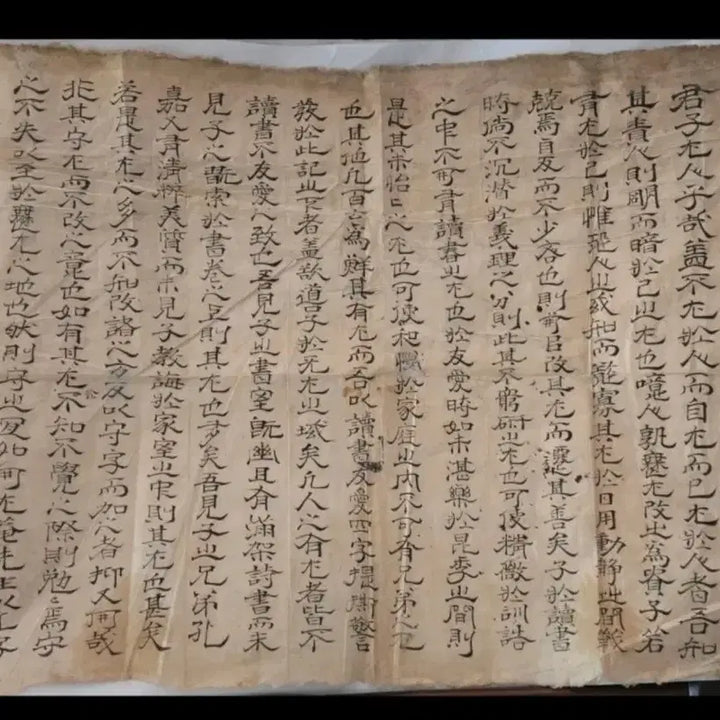 君子尤人乎哉盖不尤於人而自尤而已尤於人者吾知
其責人則明而暗於己之尤也噫人孰無尤改之為貴子若
有尤於己則惟恐人之或知而能寡其尤於日用動靜之間戰
兢焉自反而不少吝也則可以改其尤而遷其善矣子於讀書
時尚不沉潜於義理之分則此其不窮研之尤也可使精微於訓誥
之中不可有讀書之尤也於友愛時如未湛樂於昆季之間則
是其未怡〻之尤也可使和於家庭之内不可有兄弟之尤
也其他凡百云為鮮其有尤而吾以讀書友愛四字揭斯警言
教於此記之下者盖欲道子於无尤之域矣凡人之有尤者皆不
讀書不友愛之致也吾見子之書室既幽且有滿架詩書而未
見子之翫索於書卷之上則其尤也多矣吾見子之兄弟孔
嘉又有清粹美質而未見子教誨於家室之中則其尤也甚矣
若是其尤之多而不知改諸之方反以守字而加之者抑又何哉
非其守尤而不改之意也如有其尤不知不覺之際則勉焉守
之不失以至於無尤之地也然則守之如何尤菴先生以子